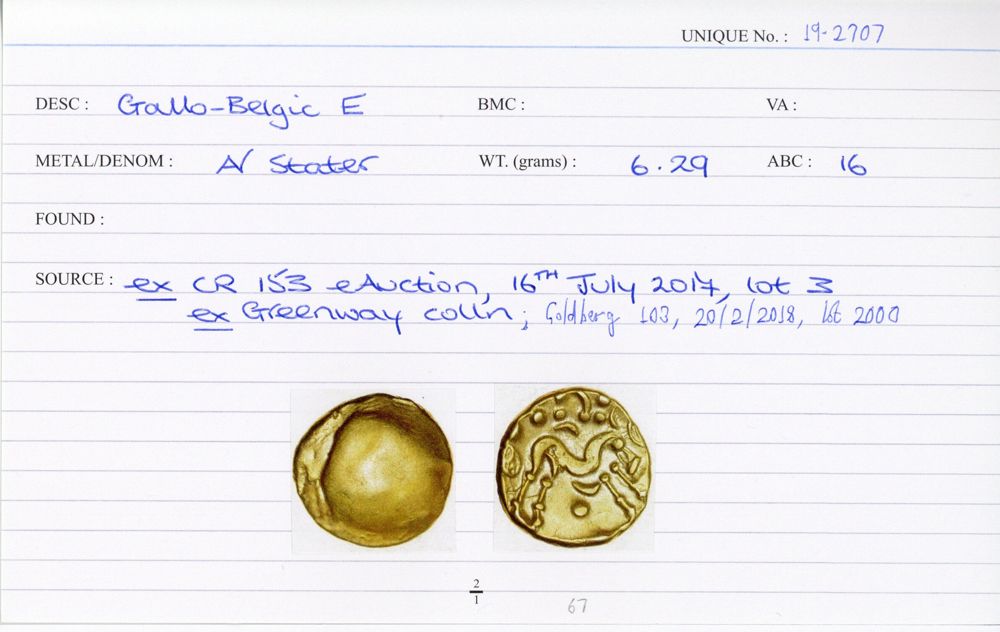 UNIQUE No. : 19-2707
DESC : Gallo-Belgic E BMC : VA :
METAL/DENOM : AV Stater WT. (grams) : 6.29 ABC : 16
FOUND :
SOURCE : ex CR 153 eAuction, 16TH July 2017, lot 3
ex Greenway colln; Goldberg 103, 20/2/2018, lot 2000
2
1
67